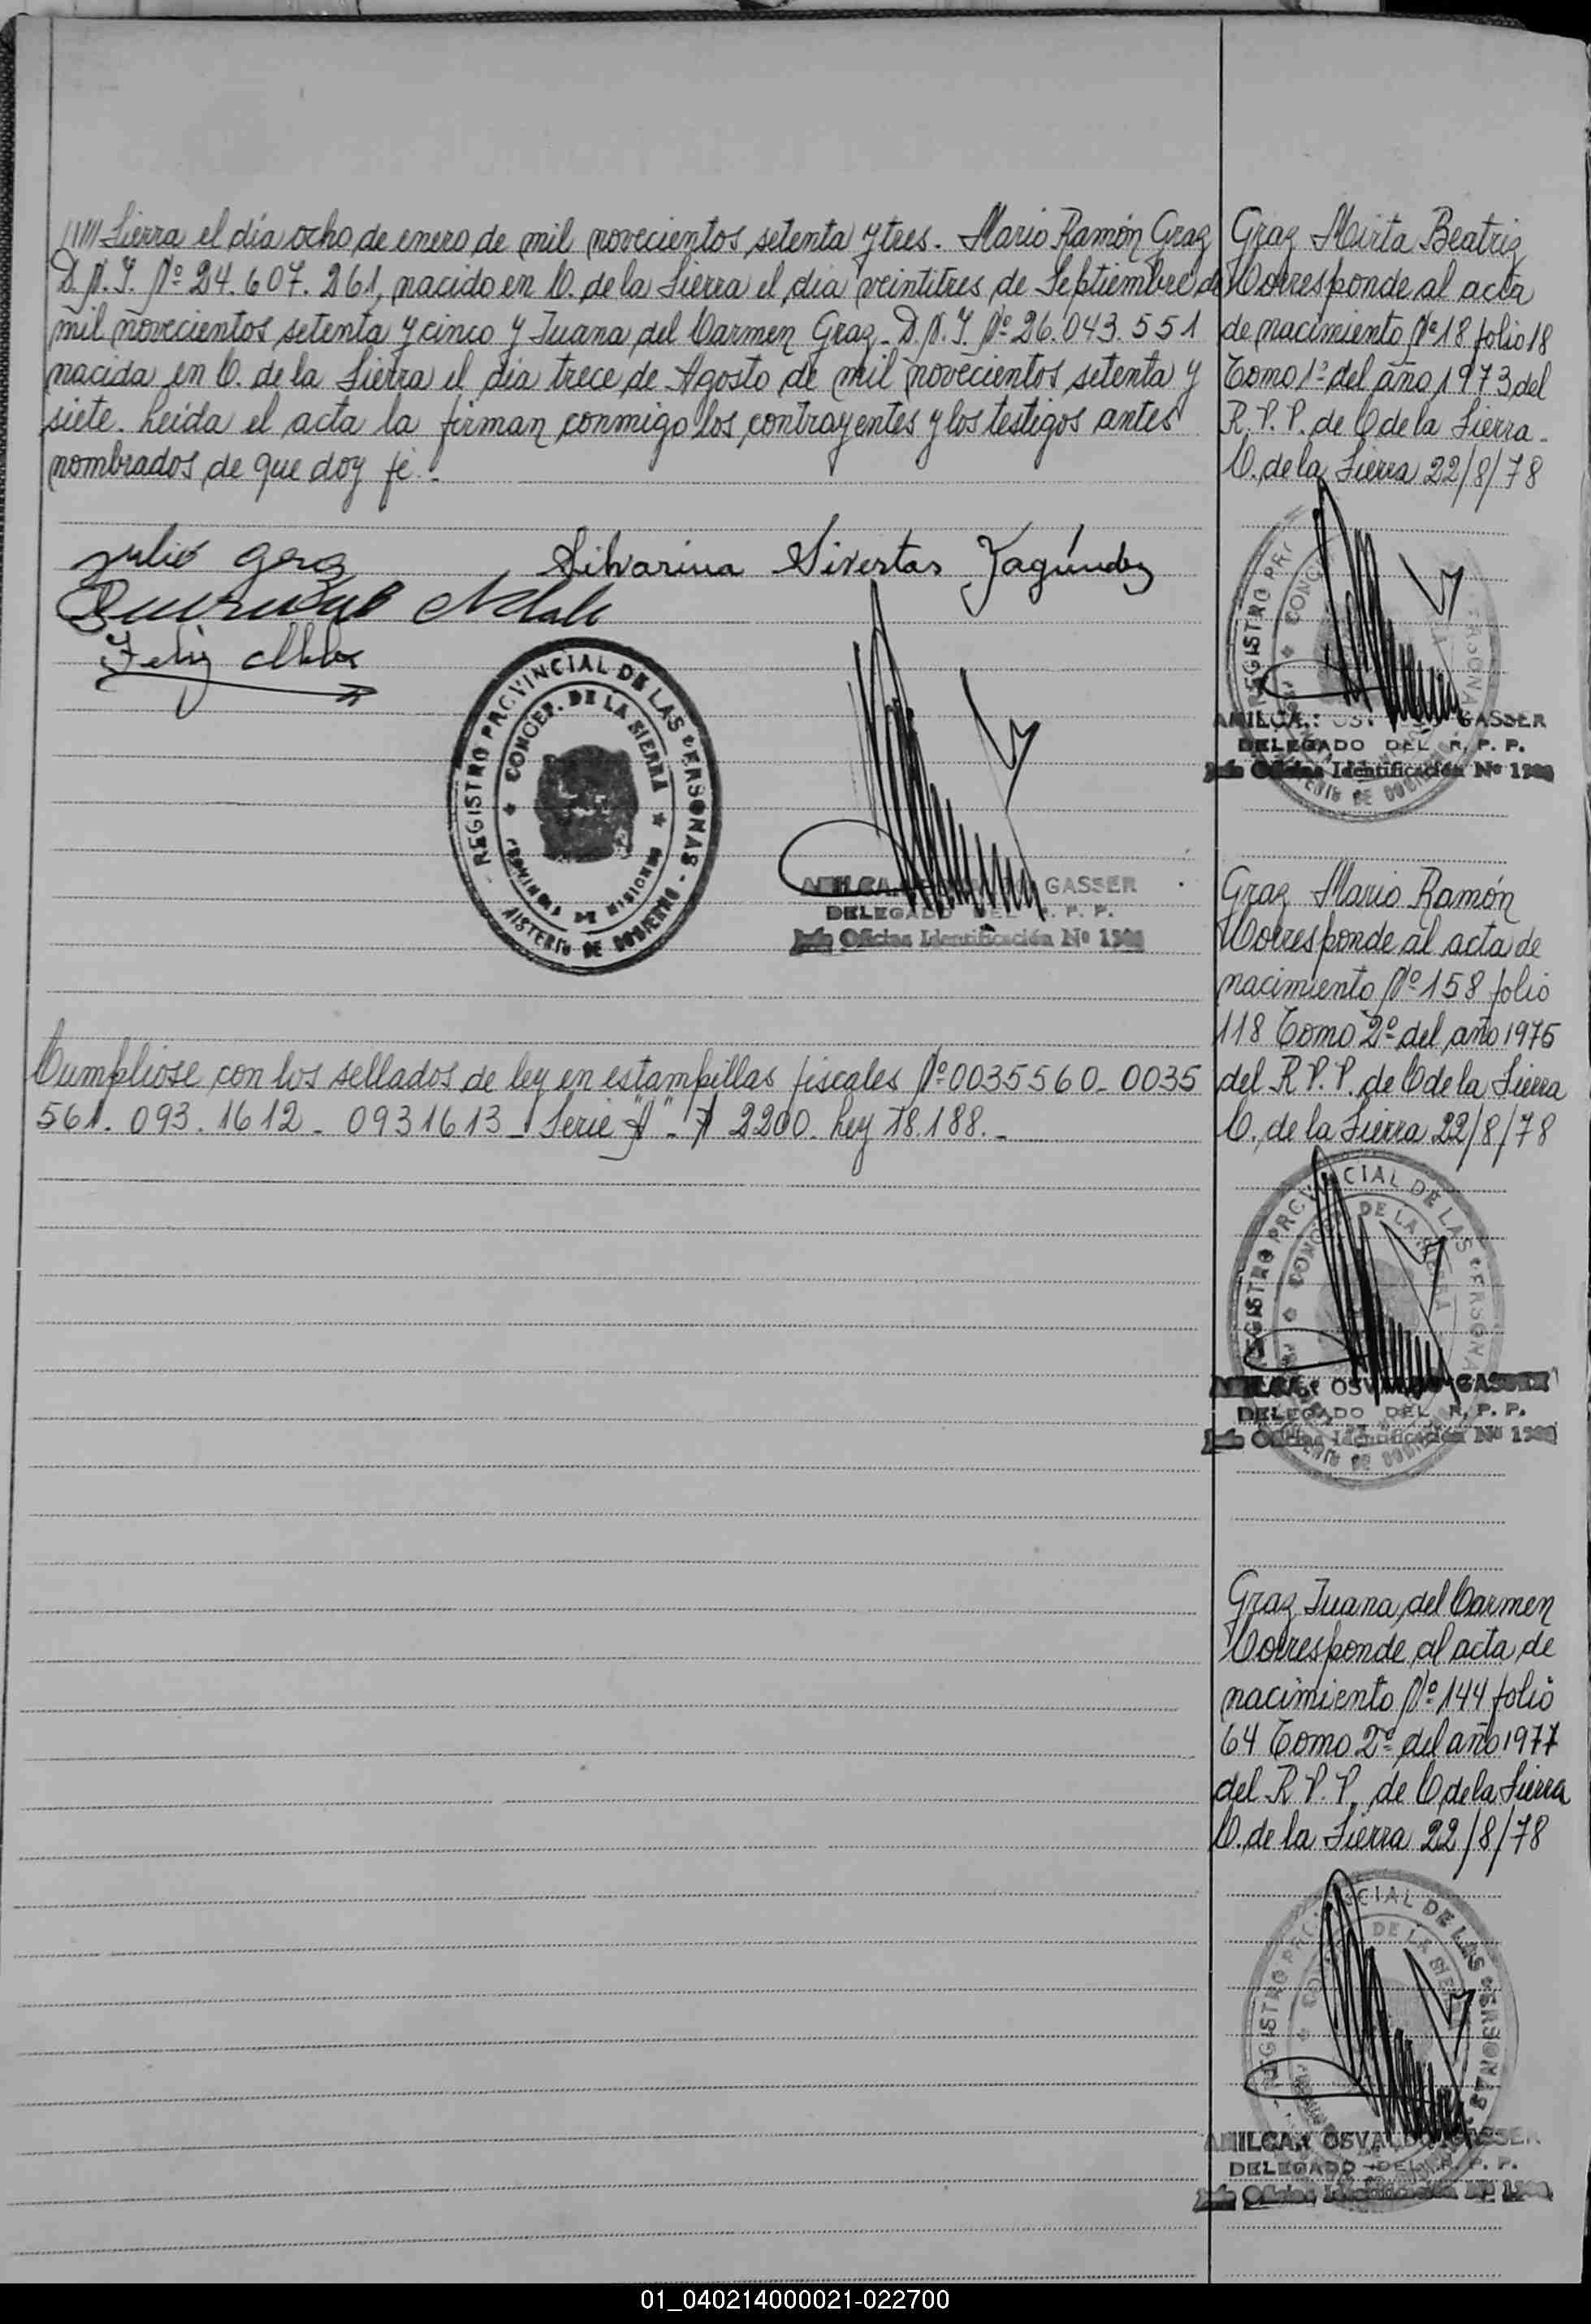 //// Sierra el día ocho de enero de mil novecientos setenta y tres. Mario Ramón Graz
D.N.I. Nº 24.607.261, nacido en C. de la Sierra el día veintitres de Septiembre de
mil novecientos setenta y cinco y Juana del Carmen Graz. D.N.I. Nº 26.043.551
nacida en C. de la Sierra el día trece de Agosto de mil novecientos setenta y
siete. Leída el acta la firman conmigo los contrayentes y los testigos antes
nombrados de que doy fé.-
Julio Graz Silvarina Sivertas Fagúndez
Feliz
REGISTRO PROVINCIAL DE LAS PERSONAS
CONCEP. DE LA SIERRA
PROVINCIA DE MISIONES
MINISTERIO DE GOBIERNO
GASSER
DELEGADO DEL R. P. P.
Jefe Oficina Identificación Nº
Cumpliose con los sellados de ley en estampillas fiscales Nº 0035560-0035
561. 093.1612 - 0931613 - Serie "A" - $ 2200. Ley 18.188.-
Graz Mirta Beatriz
Corresponde al acta
de nacimiento Nº 18 folio 18
Tomo 1º del año 1973 del
R.P.P. de C de la Sierra.
C. de la Sierra 22/8/78
REGISTRO
GASSER
DELEGADO DEL R. P. P.
Jefe Oficina Identificación Nº
Graz Mario Ramón
Corresponde al acta de
nacimiento Nº 158 folio
118 Tomo 2º del año 1975
del R.P.P. de C de la Sierra
C. de la Sierra 22/8/78
REGISTRO PROVINCIAL DE LAS PERSONAS
DE LA SIERRA
AMILCAR OSVALDO GASSER
DELEGADO DEL R. P. P.
Jefe Oficina Identificación Nº
Graz Juana del Carmen
Corresponde al acta de
nacimiento Nº 144 folio
64 Tomo 2º del año 1977
del R.P.P. de C de la Sierra
C. de la Sierra 22/8/78
REGISTRO PROVINCIAL DE LAS PERSONAS
DE LA SIERRA
AMILCAR OSVALDO GASSER
DELEGADO DEL R. P. P.
Jefe Oficina Identificación Nº
01_040214000021-022700